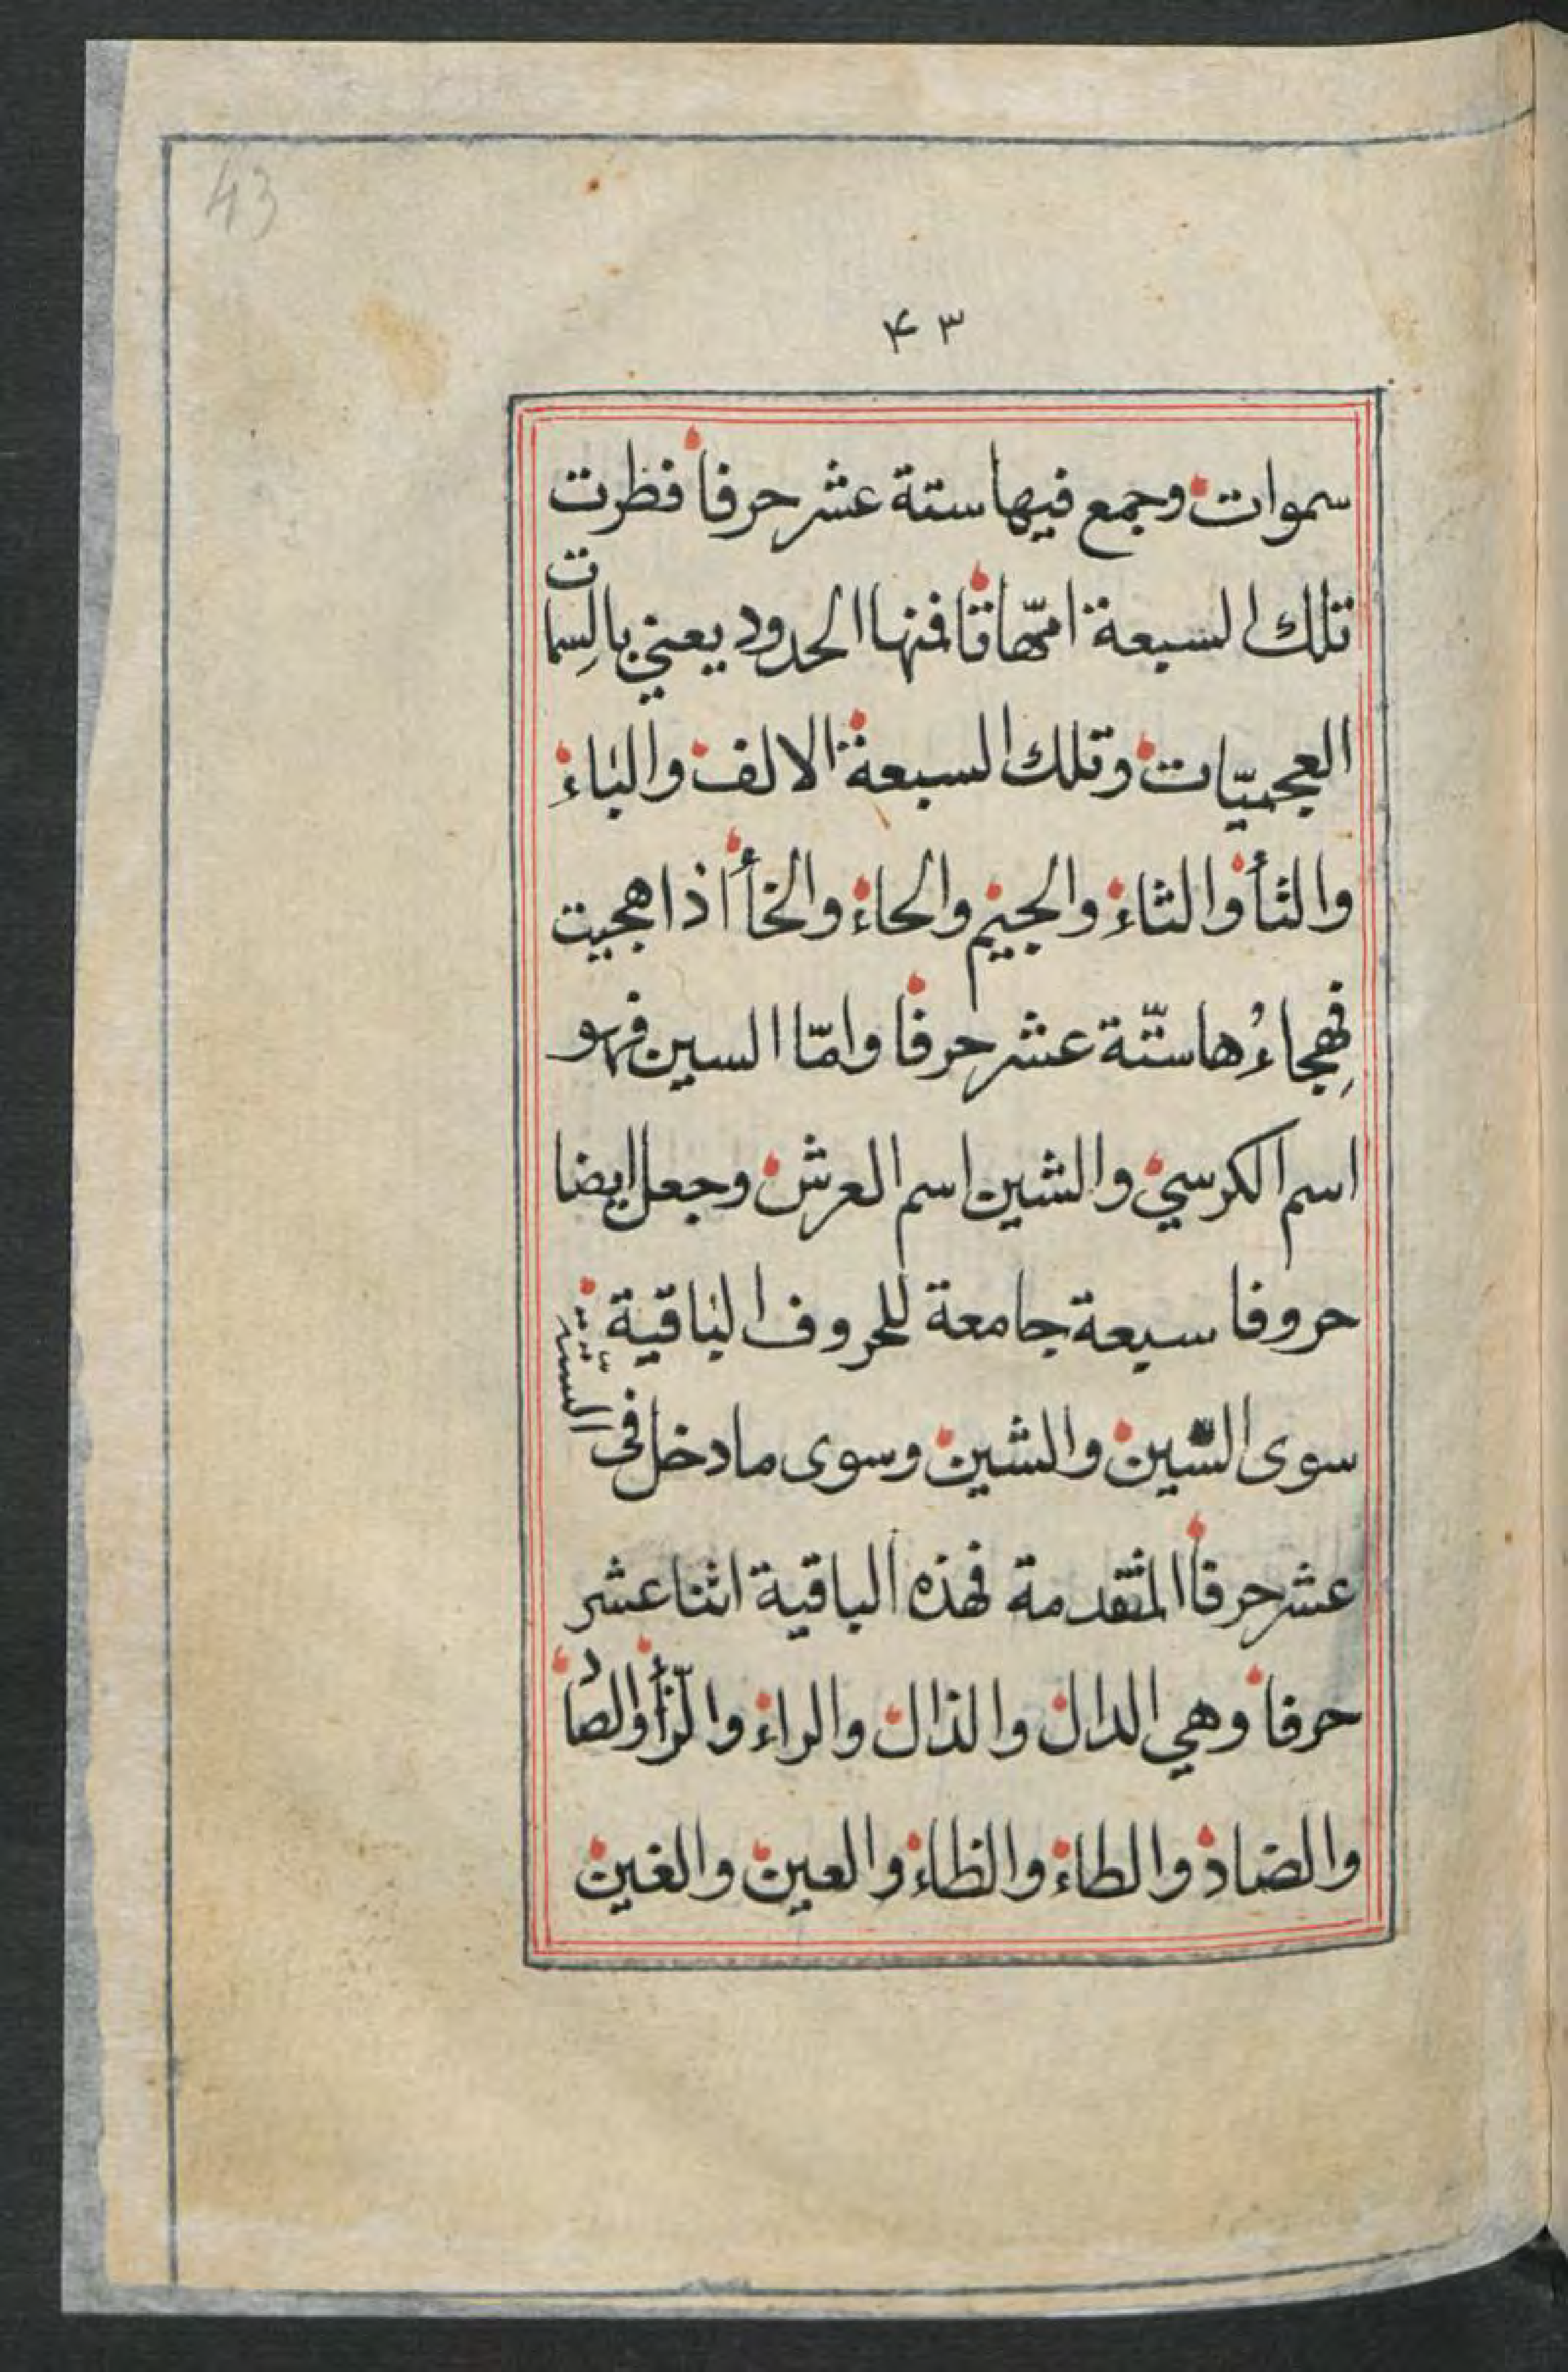 43
۴۳
سموات وجمع فيها ستة عشر حرفا فظرت
تلك السبعة امّهاتا فمنها الحدود يعني بالسِمات
العجميّات وتلك السبعة الالف والباء
والتأ والثاء والجيم والحاء والخأ اذا هجيت
فهجاءُها ستّة عشر حرفا وامّا السين فهو
اسم الكرسي والشين اسم العرش وجعل ايضا
حروفا سبعة جامعة للحروف الباقية
سوى السّين والشين وسوى ما دخل في الستّة
عشر حرفا المتقدمة فهذه الباقية اثنا عشر
حرفا وهي الدال والذال والراء والزّأ والصاد
والضاد والطاء والظاء والعين والغين